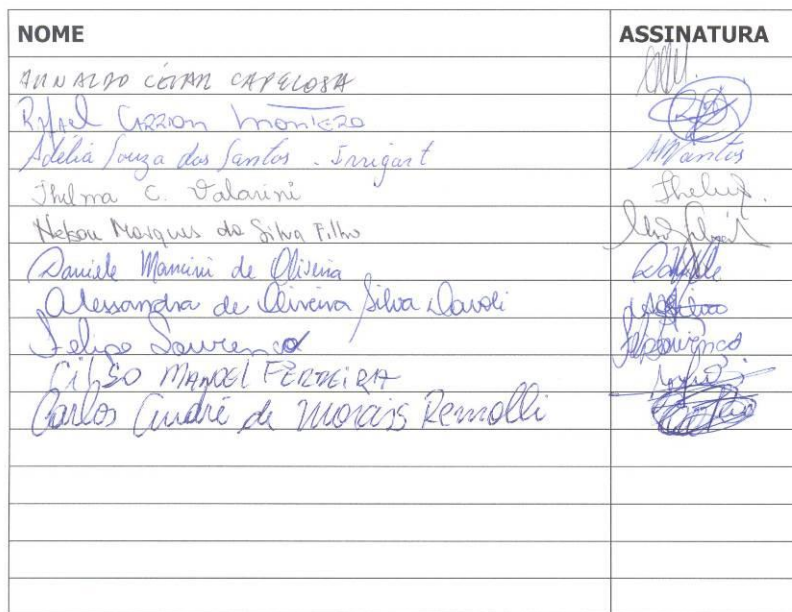 NOME ASSINATURA
ARNALDO CÉSAR CAPELOSA
Rafael CARRION MONTERO
Adélia Souza dos Santos - Irrigart
Thelma C. Valarini Thelma
Nelson Marques da Silva Filho
Daniele Mancini de Oliveira Daniele
Alessandra de Oliveira Silva Davoli
Felipe Lourenço
MANOEL FERREIRA
Carlos André de Morais